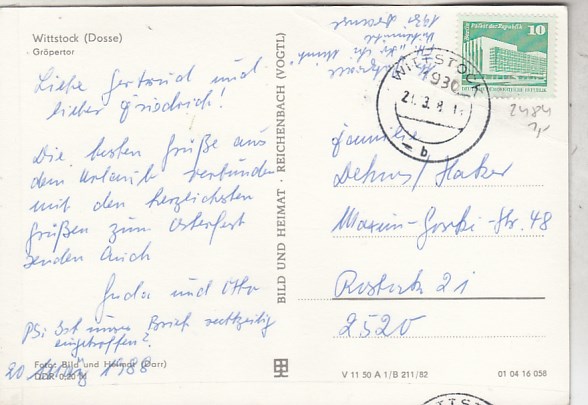 Wittstock (Dosse)
Gröpertor
Liebe Gertraud und
lieber Friedrich!
Die besten Grüße aus
dem Urlaub verbunden
mit den herzlichsten
Grüßen zum Osterfest
senden Euch
und Otto
PS: Ist unser Brief rechtzeitig
eingetroffen?
Foto: Bild und Heimat (Darr)
20. März 1988
BILD UND HEIMAT · REICHENBACH (VOGTL)
1931
Palast der Republik
10
WITTSTOCK
1930
21.3.8
b
2484
Familie
Maxim-Gorki-Str. 48
Rostock 21
2520
V 11 50 A 1/B 211/82
01 04 16 058